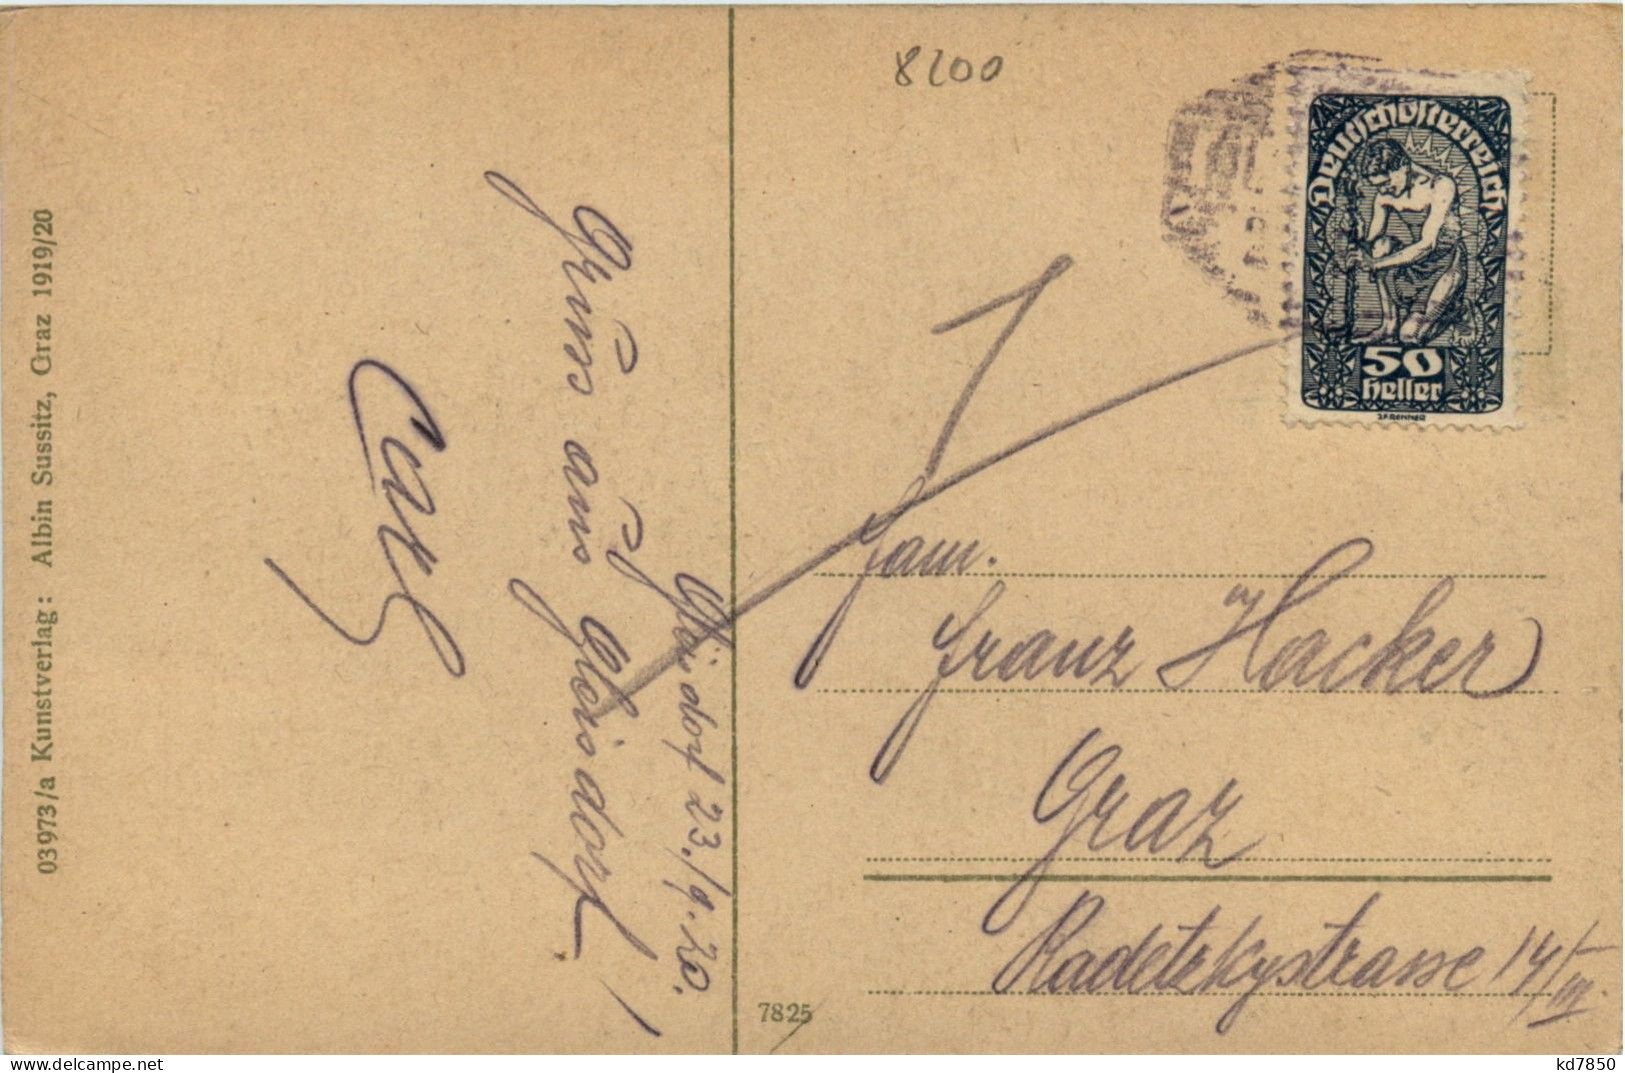 03973/a Kunstverlag: Albin Sussitz, Graz 1919/20
Gleisdorf 23./9. 20.
Gruss aus Gleisdorf!
8200
Deutschösterreich
50
Heller
RENNER
Fam.
Franz Hacker
Graz
Radetzkystrasse 14/III.
7825
delcampe.net
kd7850